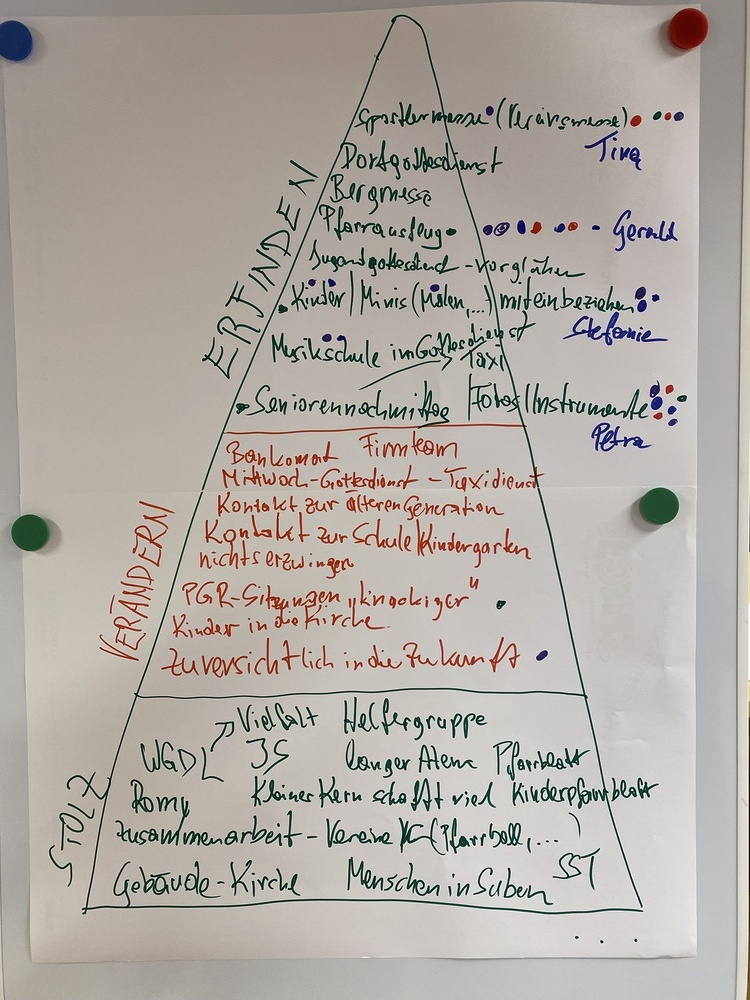 Sportlermesse (Vereinsmesse)
Tina
Dorfgottesdienst
Bergmesse
Pfarrausflug
Gerald
Jugendgottesdienst - vorglühen
ERFINDEN
Kinder | Minis (Malen, ...) miteinbeziehen
Stefanie
Musikschule im Gottesdienst
Taxi
Seniorennachmittag | Fotos | Instrumente
Petra
Bankomat Firmteam
Mittwoch-Gottesdienst - Taxidienst
Kontakt zur älteren Generation
Kontakt zur Schule | Kindergarten
nichts erzwingen
VERÄNDERN
PGR-Sitzungen „knackiger"
Kinder in die Kirche
Zuversichtlich in die Zukunft
Vielfalt Helfergruppe
WGDL JS langer Atem Pfarrblatt
Romy Kleiner Kern schafft viel Kinderpfarrblatt
STOLZ
Zusammenarbeit - Vereine (Pfarrball, ... )
Gebäude - Kirche Menschen in Suben SST
. . .